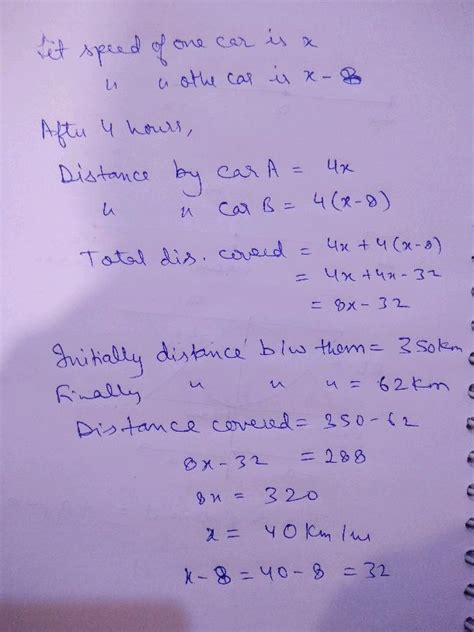 Let speed of one car is x
u u othe car is x - 8
After 4 hours,
Distance by car A = 4x
u u car B = 4(x-8)
Total dis. covered = 4x + 4(x-8)
= 4x + 4x - 32
= 8x - 32
Initially distance b/w them = 350km
Finally u u u = 62km
Distance covered = 350-62
8x-32 = 288
8x = 320
x = 40 Km/hr
x-8 = 40-8 = 32